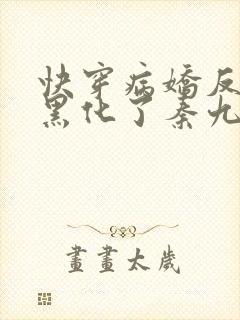 快穿病嬌反
黑化了秦九
畫畫太歲